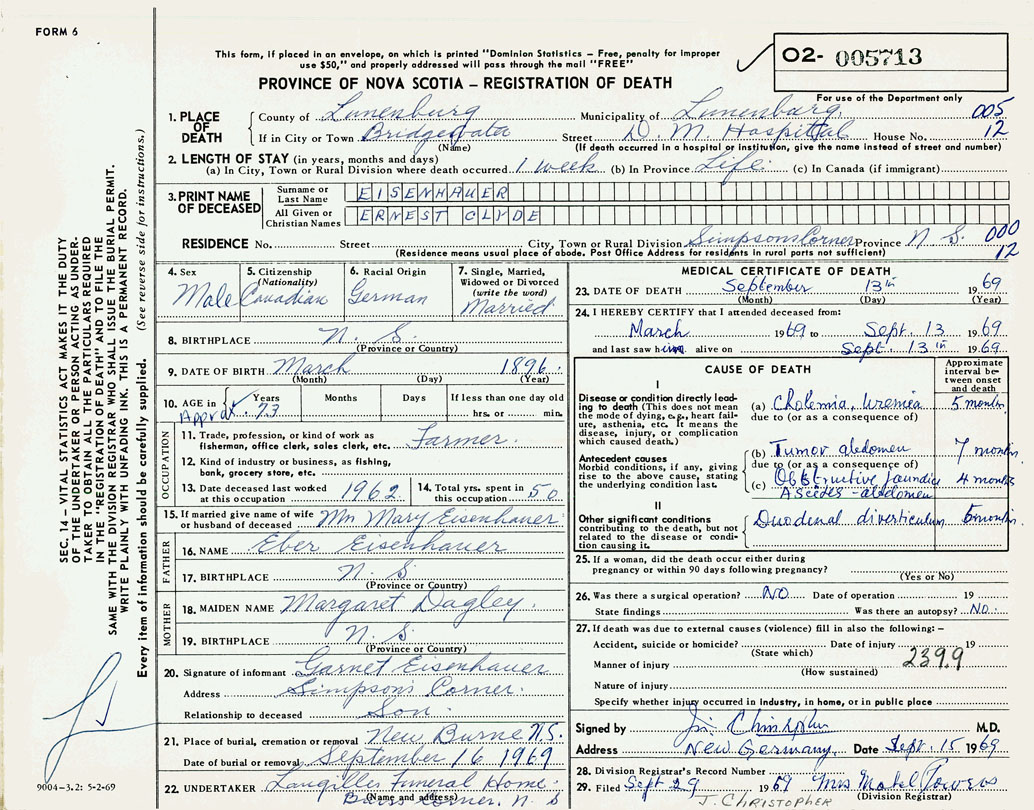 FORM 6
This form, if placed in an envelope, on which is printed "Dominion Statistics – Free, penalty for improper
use $50," and properly addressed will pass through the mail "FREE"
O2- 005713
For use of the Department only
PROVINCE OF NOVA SCOTIA – REGISTRATION OF DEATH
1. PLACE OF DEATH
County of Lunenburg Municipality of Lunenburg 005
If in City or Town Bridgewater Street D. M. Hospital House No. 12
(Name) (If death occurred in a hospital or institution, give the name instead of street and number)
2. LENGTH OF STAY (in years, months and days)
(a) In City, Town or Rural Division where death occurred 1 week (b) In Province Life (c) In Canada (if immigrant)
3. PRINT NAME OF DECEASED
Surname or Last Name EISENHAUER
All Given or Christian Names ERNEST CLYDE
RESIDENCE No. Street City, Town or Rural Division Simpsons Corner Province N. S. 000
(Residence means usual place of abode. Post Office Address for residents in rural parts not sufficient) 12
4. Sex Male
5. Citizenship (Nationality) Canadian
6. Racial Origin German
7. Single, Married, Widowed or Divorced (write the word) Married
8. BIRTHPLACE N. S.
(Province or Country)
9. DATE OF BIRTH March 1896
(Month) (Day) (Year)
10. AGE in Years Months Days If less than one day old
Approx. 73 hrs. or min.
OCCUPATION
11. Trade, profession, or kind of work as
fisherman, office clerk, etc. Farmer
12. Kind of industry or business, as fishing,
bank, grocery store, etc.
13. Date deceased last worked
at this occupation 1962
14. Total yrs. spent in
this occupation 50
15. If married give name of wife
or husband of deceased Mrs Mary Eisenhauer
FATHER
16. NAME Eber Eisenhauer
17. BIRTHPLACE N. S.
(Province or Country)
MOTHER
18. MAIDEN NAME Margaret Dagley
19. BIRTHPLACE N. S.
(Province or Country)
20. Signature of informant Garnet Eisenhauer
Address Simpsons Corner.
Relationship to deceased Son.
21. Place of burial, cremation or removal New Burne N.S.
Date of burial or removal September 16 1969
22. UNDERTAKER Funeral Home
(Name and address) Corner, N. S
MEDICAL CERTIFICATE OF DEATH
23. DATE OF DEATH September 13th 1969
(Month) (Day) (Year)
24. I HEREBY CERTIFY that I attended deceased from:
March 1969 to Sept. 13 1969
and last saw him alive on Sept. 13th 1969
CAUSE OF DEATH
Approximate interval between onset and death
I
Disease or condition directly leading to death (This does not mean the mode of dying, e.g., heart failure, asthenia, etc. It means the disease, injury, or complication which caused death.)
(a) Cholemia, uremia 5 months
due to (or as a consequence of)
Antecedent causes
Morbid conditions, if any, giving rise to the above cause, stating the underlying condition last.
(b) Tumor abdomen 7 months
due to (or as a consequence of)
(c) Obstructive jaundice 4 months
Ascites - abdomen
II
Other significant conditions
contributing to the death, but not related to the disease or condition causing it.
Duodenal diverticulum 5 months
25. If a woman, did the death occur either during
pregnancy or within 90 days following pregnancy?
(Yes or No)
26. Was there a surgical operation? NO Date of operation 19
State findings Was there an autopsy? NO.
27. If death was due to external causes (violence) fill in also the following: –
Accident, suicide or homicide? Date of injury 19
(State which) 239.9
Manner of injury
(How sustained)
Nature of injury
Specify whether injury occurred in industry, in home, or in public place
Signed by Christopher M.D.
Address New Germany, Date Sept. 15 1969
28. Division Registrar's Record Number
29. Filed Sept 29 1969 Mrs Mabel Powers
J. CHRISTOPHER (Division Registrar)
SEC. 14 – VITAL STATISTICS ACT MAKES IT THE DUTY
OF THE UNDERTAKER OR PERSON ACTING AS UNDER-
TAKER TO OBTAIN ALL THE PARTICULARS REQUIRED
IN THE "REGISTRATION OF DEATH" AND TO FILE THE
SAME WITH THE DIVISION REGISTRAR WHO SHALL ISSUE THE BURIAL PERMIT.
WRITE PLAINLY WITH UNFADING INK. THIS IS A PERMANENT RECORD.
Every item of information should be carefully supplied. (See reverse side for instructions.)
9004-3.2: 5-2-69